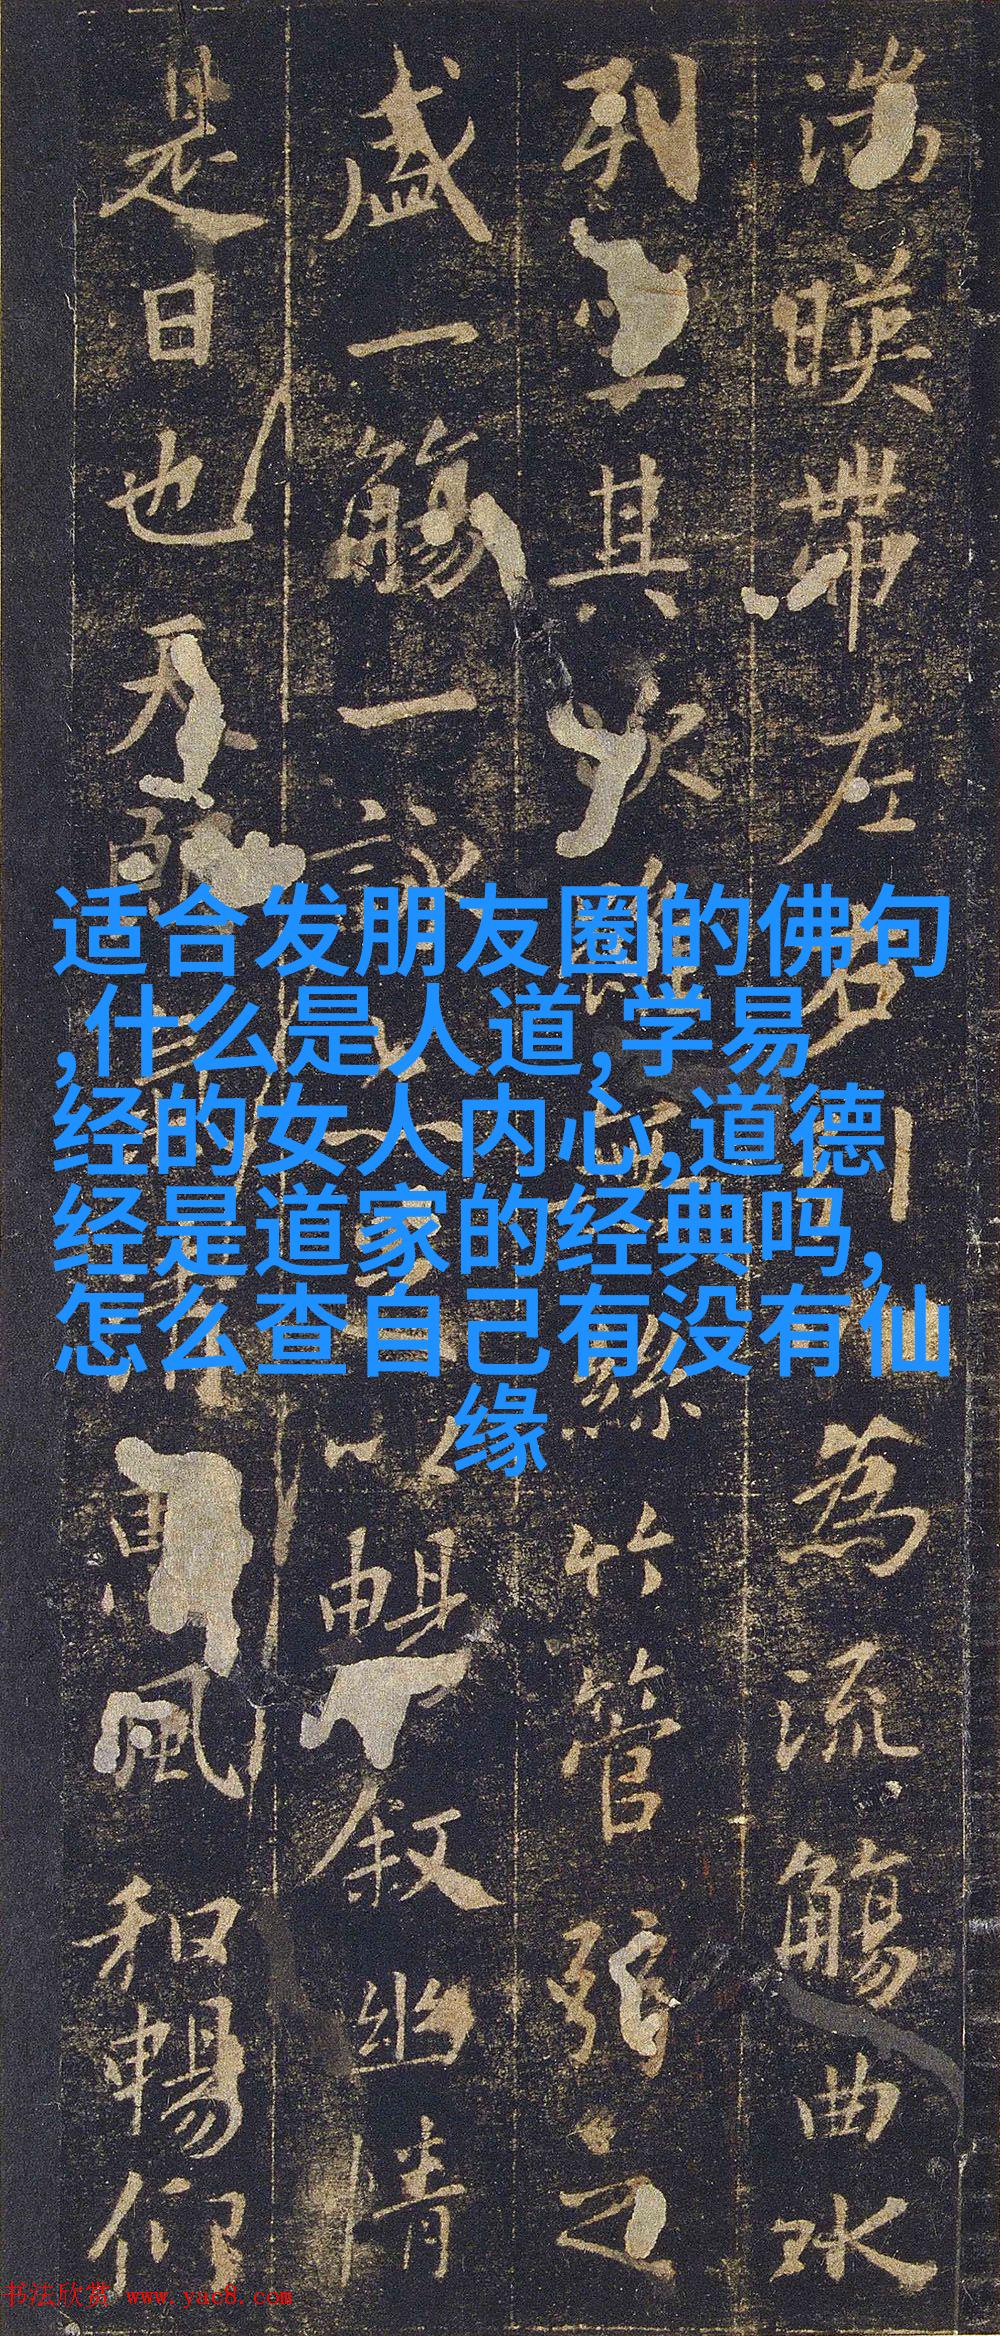 湍暎帶左右為流觴曲水
列坐其次絲竹管弦之
盛一觴一詠以暢敘幽情
是日也天風和暢仰
适合发朋友圈的佛句
,什么是人道,学易
经的女人内心,道德
经是道家的经典吗,
怎么查自己有没有仙
缘
书法欣赏 www.yac8.com